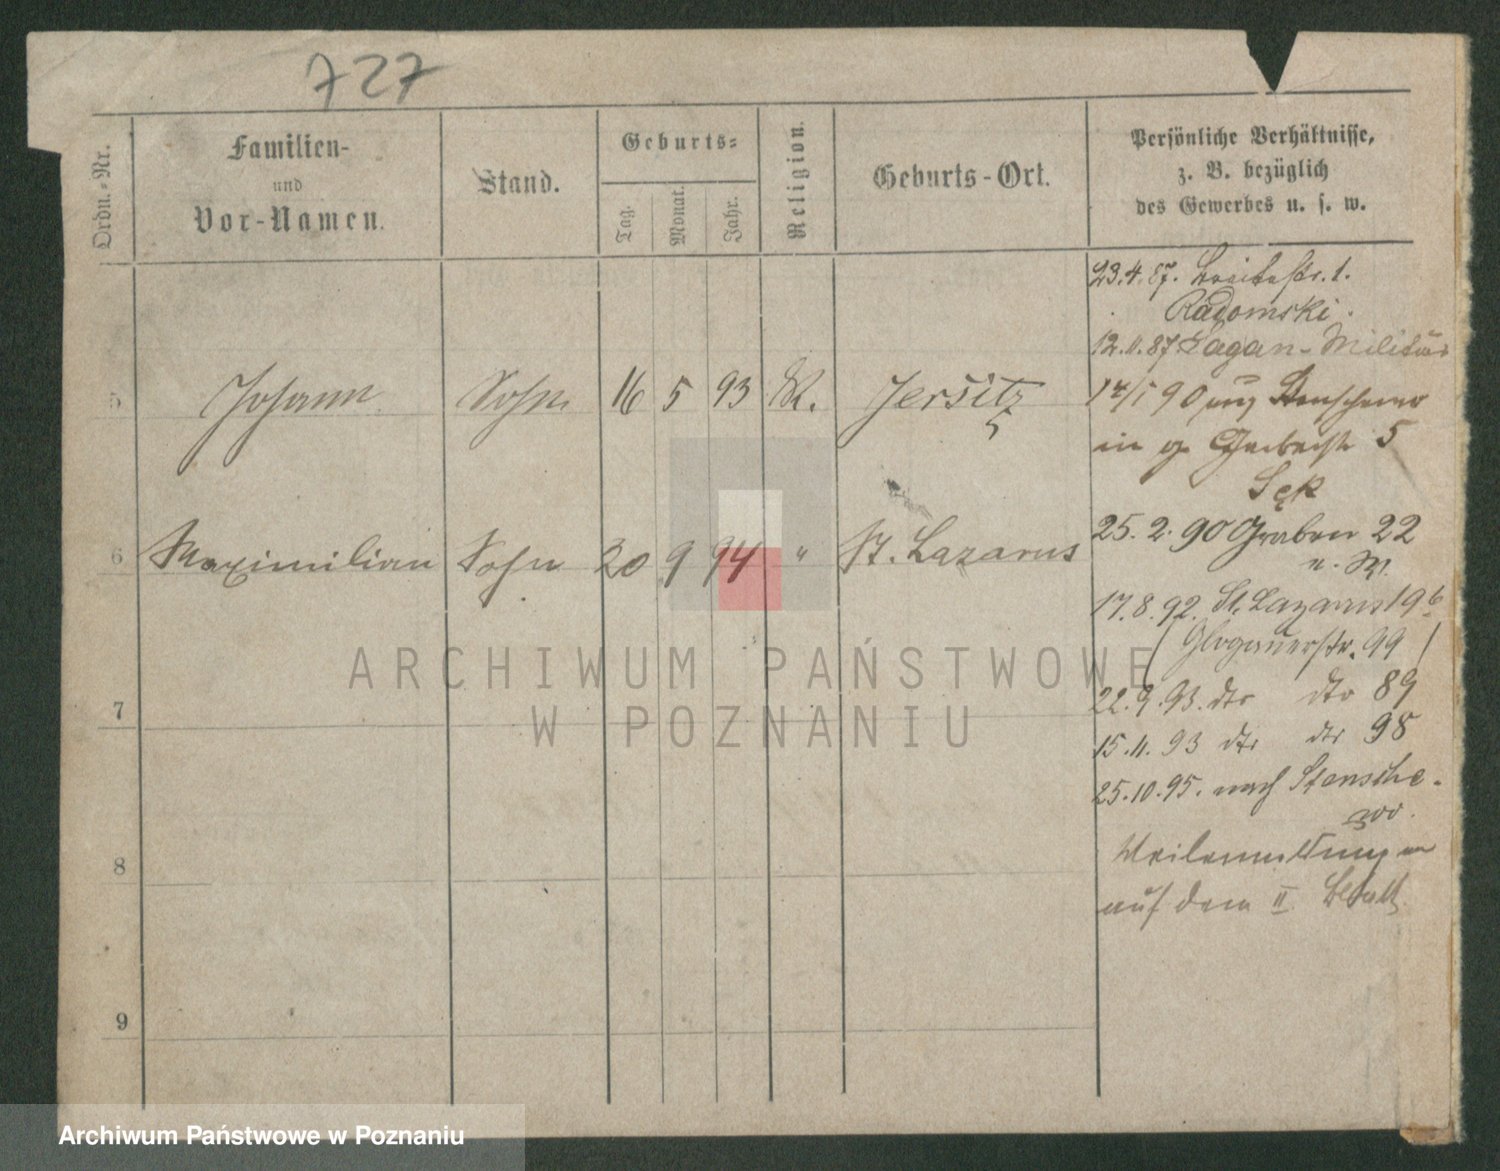 727
Ordn.-Nr.
Familien-
und
Vor-Namen.
Stand.
Geburts-
Tag.
Monat.
Jahr.
Religion.
Geburts-Ort.
Persönliche Verhältnisse,
z. B. bezüglich
des Gewerbes u. s. w.
23.4.87. Breitestr. 1.
Radomski.
12.11.87. Sagan-Militär
5 Johann Sohn 16 5 93 K. Jersitz
in Gerberstr 5
Sęk
25. 2. 90 Graben 22
6 Maximilian Sohn 20 9 94 " St. Lazarus
17.8.92. St. Lazarus 19
(Glogauerstr. 99)
22.9.93. dto dto 89
7
15.11.93 dto dto 98
25.10.95. nach Stensche-
wo.
8
auf dem II Blatt
9
ARCHIWUM PAŃSTWOWE
W POZNANIU
Archiwum Państwowe w Poznaniu